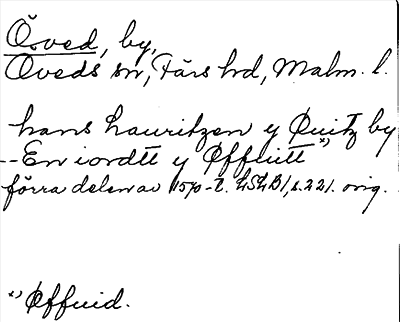 Öved, by,
Öveds sn, Färs hd, Malm. l.
hans Lauritzen y Øuitz by
--En iordtt y Øffuitt *)
förra delen av 1570-t. LSLB1, s.221. orig.
*) Øffuid.